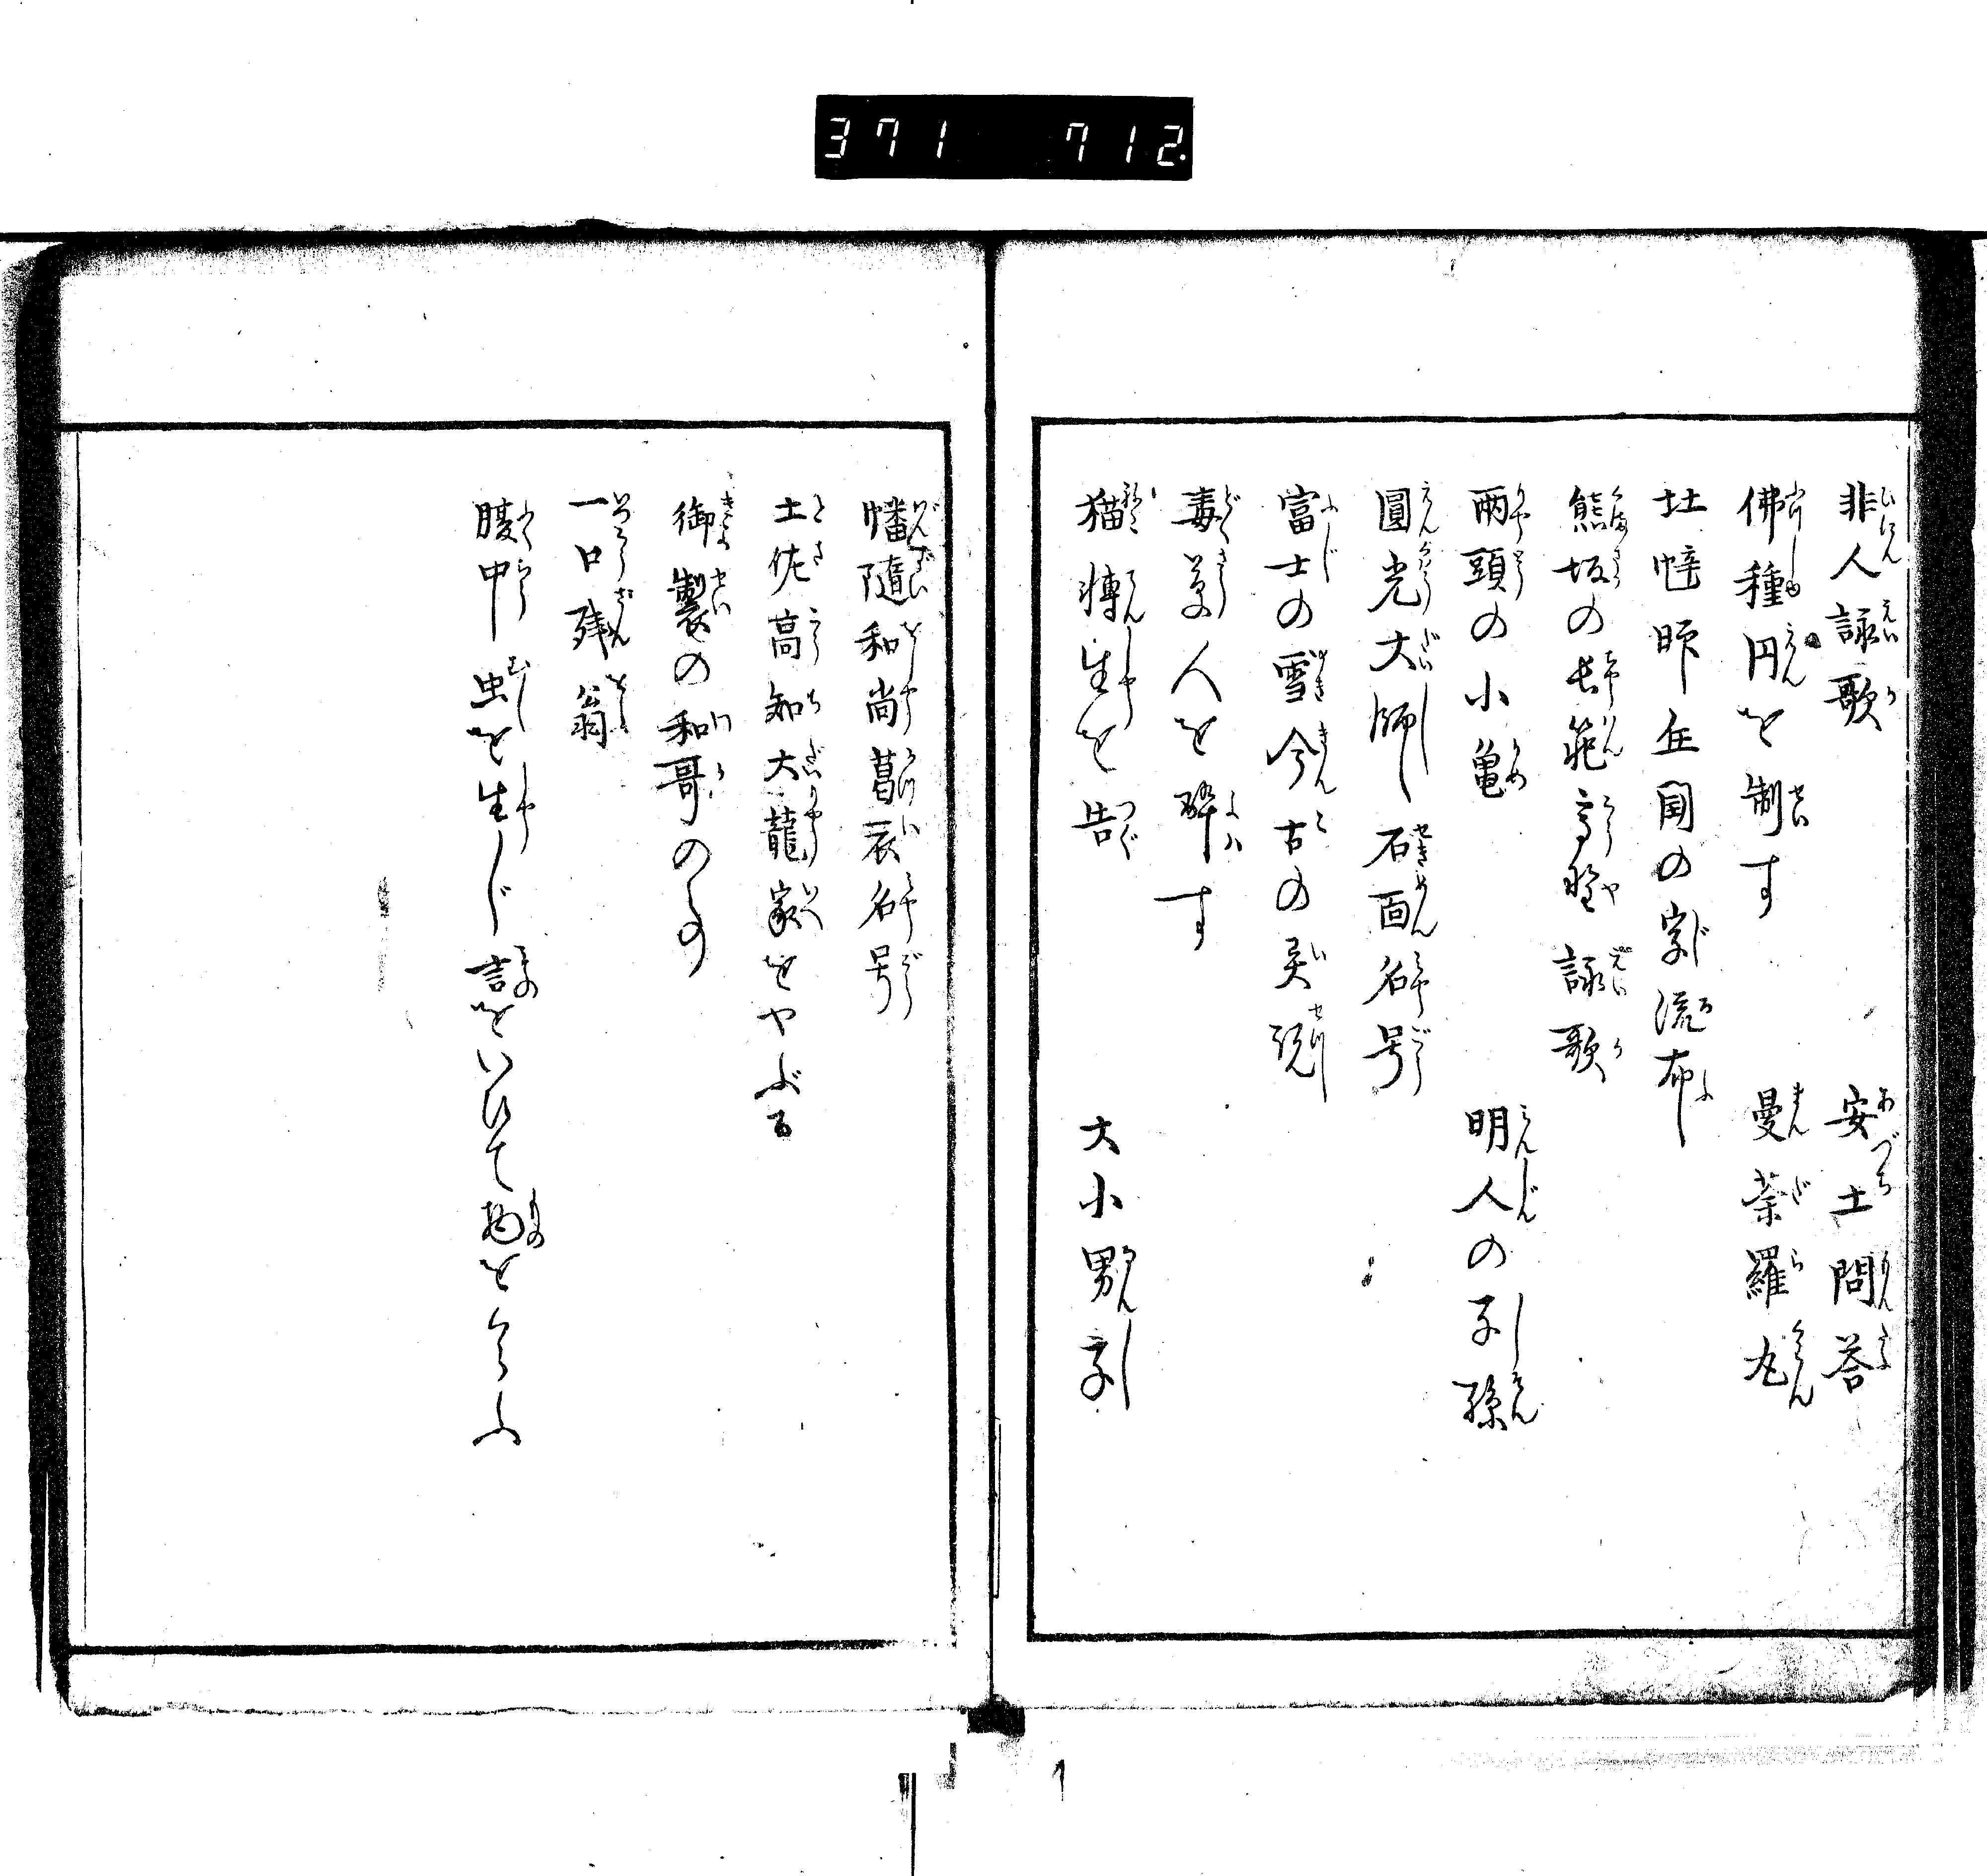 371 712
非人詠歌 安土問答
佛種円を制す 曼荼羅丸
㘴 圀の字流布
熊坂の長範高野詠歌
兩頭の小亀 明人の子孫
圓光大師石面名号
富士の雪今古の異説
毒草人を酔す
猫轉生を告 大小男字
幡隨和尚葛衣名号
土佐高知大龍家をやぶる
御製の和哥の事
一口残翁
腹中虫を生じ言をいひて物をくらふ